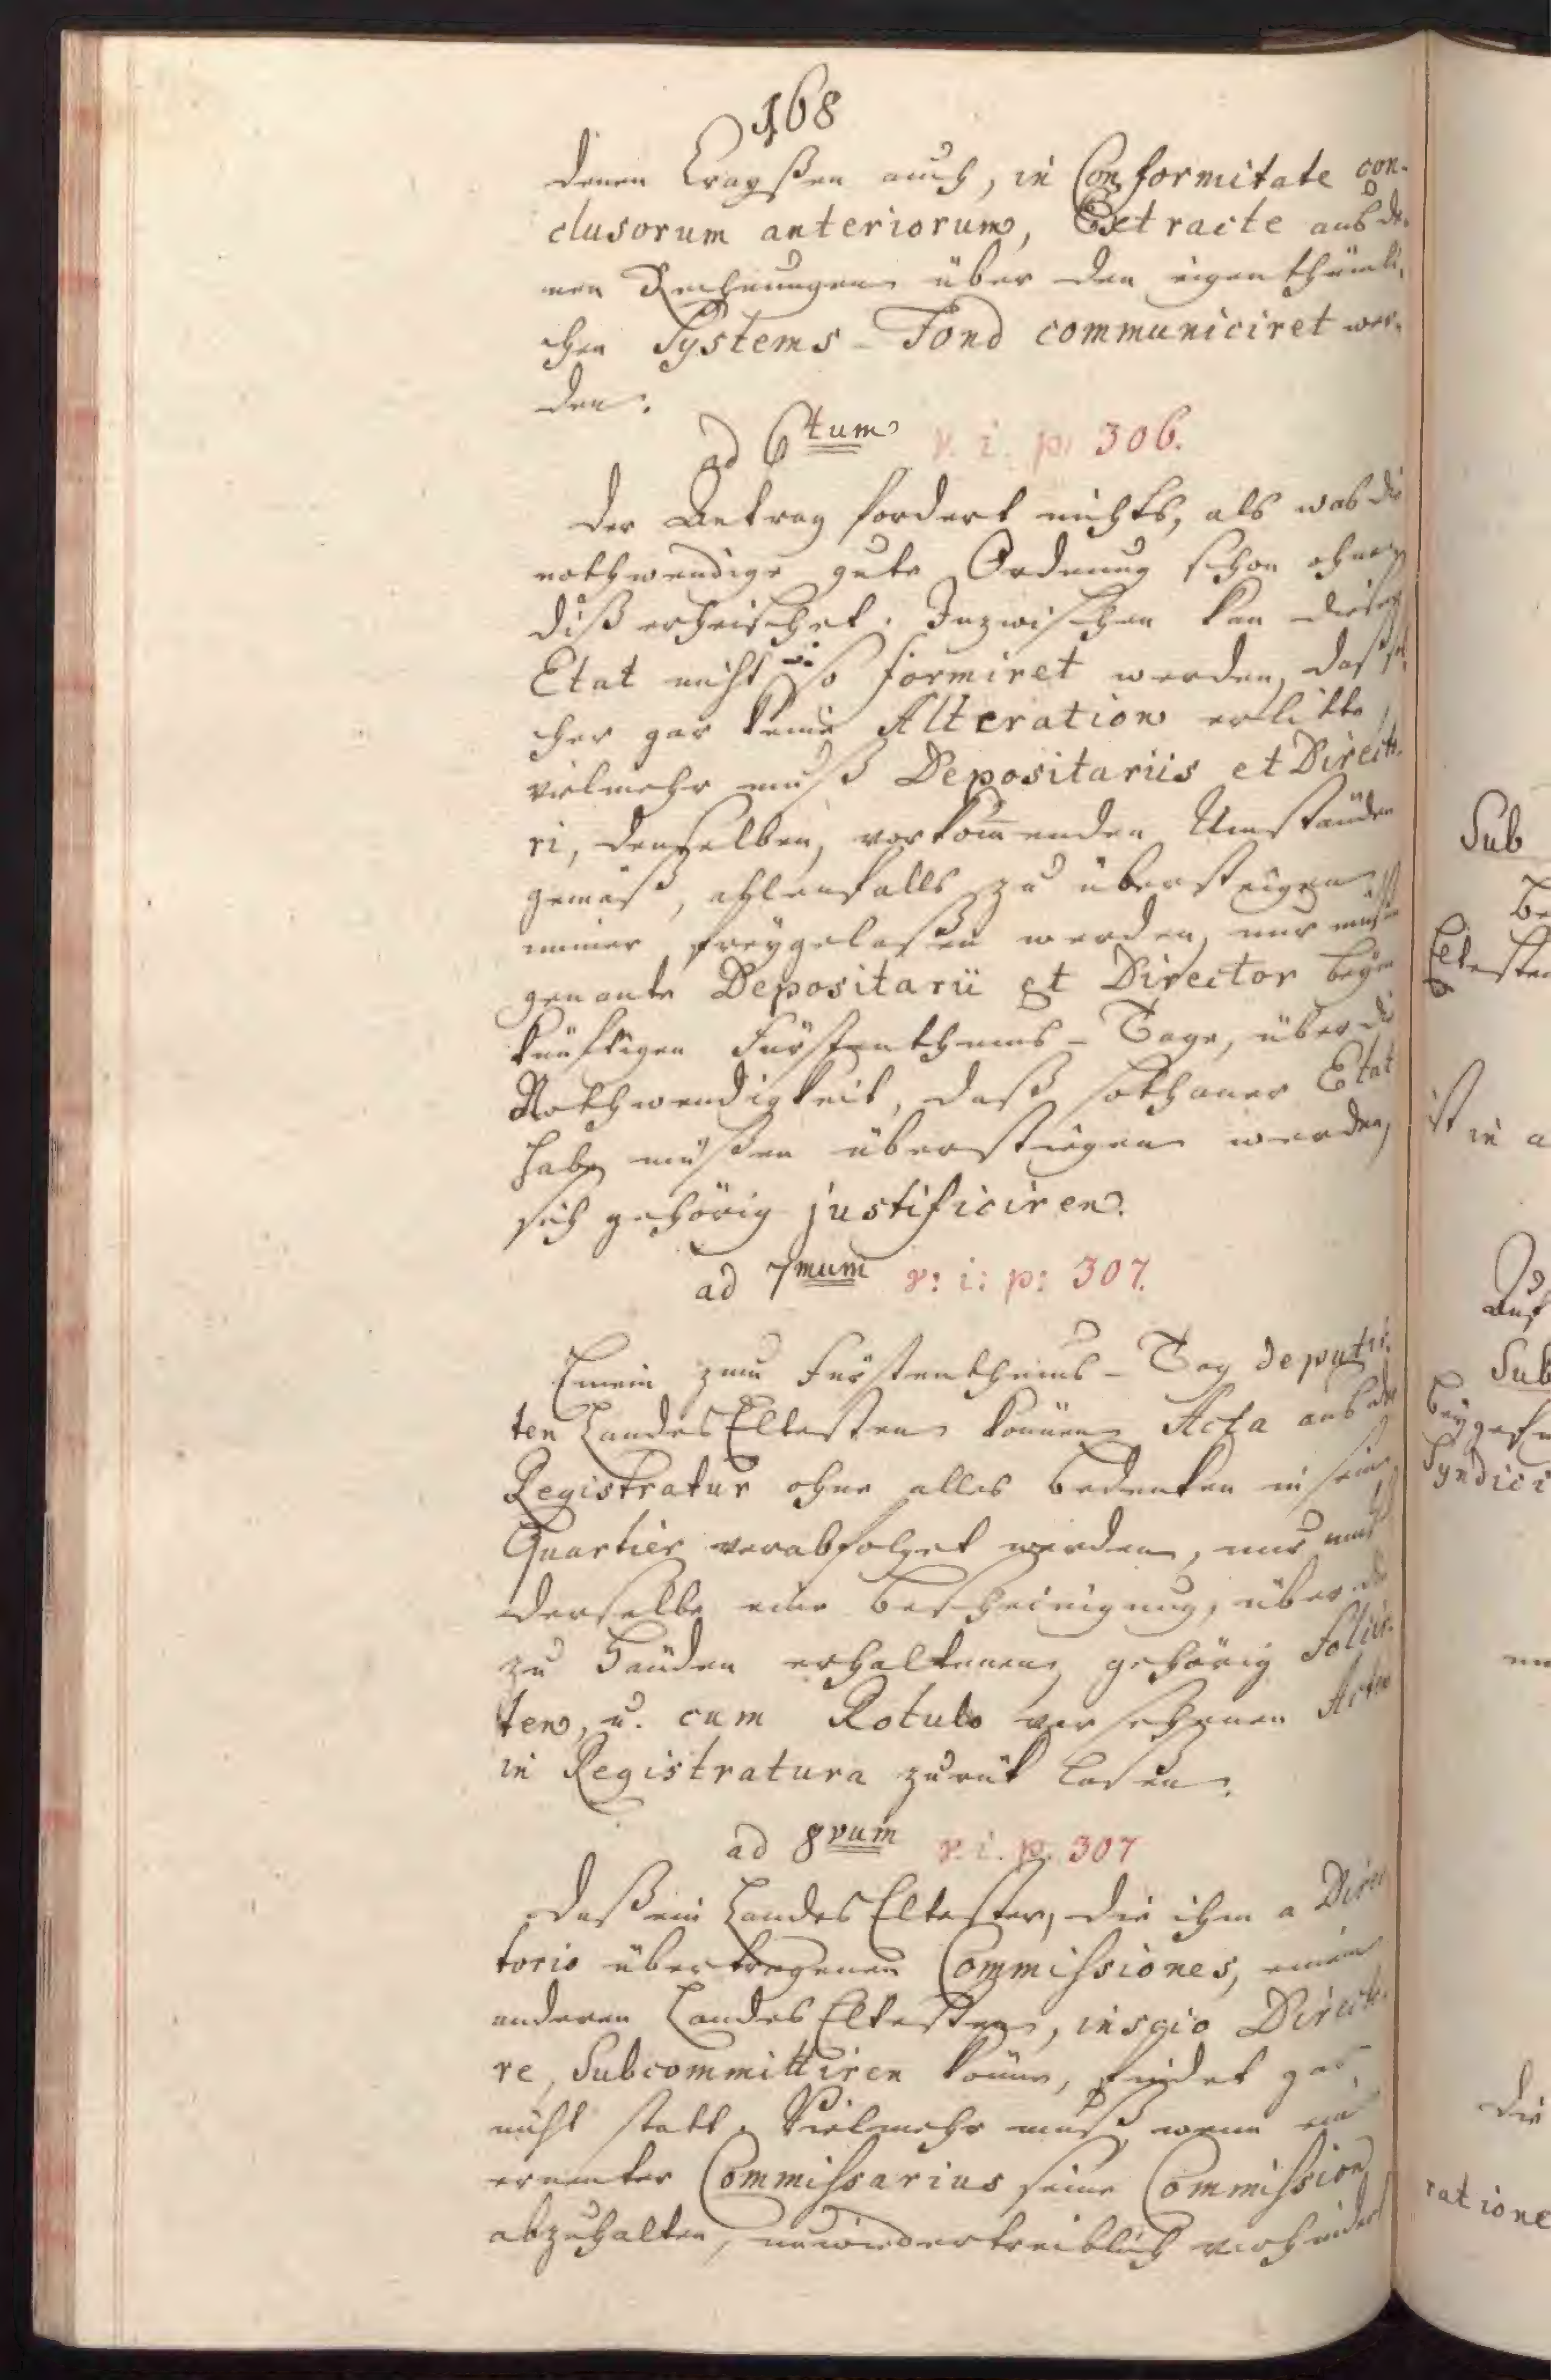 168
denen Crayßen auch, in Conformitate con-
clusorum anteriorum, Extracte aus de-
nen Rechnungen über den eigenthümli-
chen Systems-Fond communiciret wer-
den.
ad 6tum v. i. p. 306.
Der Antrag fordert nichts, als was die
nothwendige gute Ordnung schon ohne
diß erheischet. Inzwischen kan dieser
Etat nicht so formiret werden, daß sol-
cher gar keine Alteration erlitte,
vielmehr muß Depositariis et Directo-
ri, denselben, vorkommenden Umständen
gemäß, allenfalls zu übersteigen
immer freygelaßen werden, nur müßen
genante Depositarii et Director beym
künftigen Fürstenthums-Tage, über die
Nothwendigkeit, daß sothaner Etat
habe müßen überstiegen werden,
sich gehörig justificiren.
ad 7mum v: i: p: 307.
Einem zum Fürstenthums-Tag deputir-
ten Landes Eltesten können Acta aus der
Registratur ohne alles Bedenken in sein
Quartier verabfolget werden, nur muß
derselbe eine Bescheinigung, über die
zu Händen erhaltenen, gehörig foliir-
ten, u. cum Rotulo versehenen Acten
in Registratura zurük laßen.
ad 8vum v. i. p. 307
Daß ein Landes Eltester, die ihm a Direc-
torio übertragenen Commissiones, einem
anderen Landes Eltesten, inscio Directo-
re, Subcommittiren könne, findet gar
nicht statt. Vielmehr muß, wenn ein
ernenter Commissarius seine Commission
abzuhalten, unwiedertreiblich verhindert
Sub
Be
Eltesten
ist in a
Auf
Sub
beygef
Syndici
die
ratione